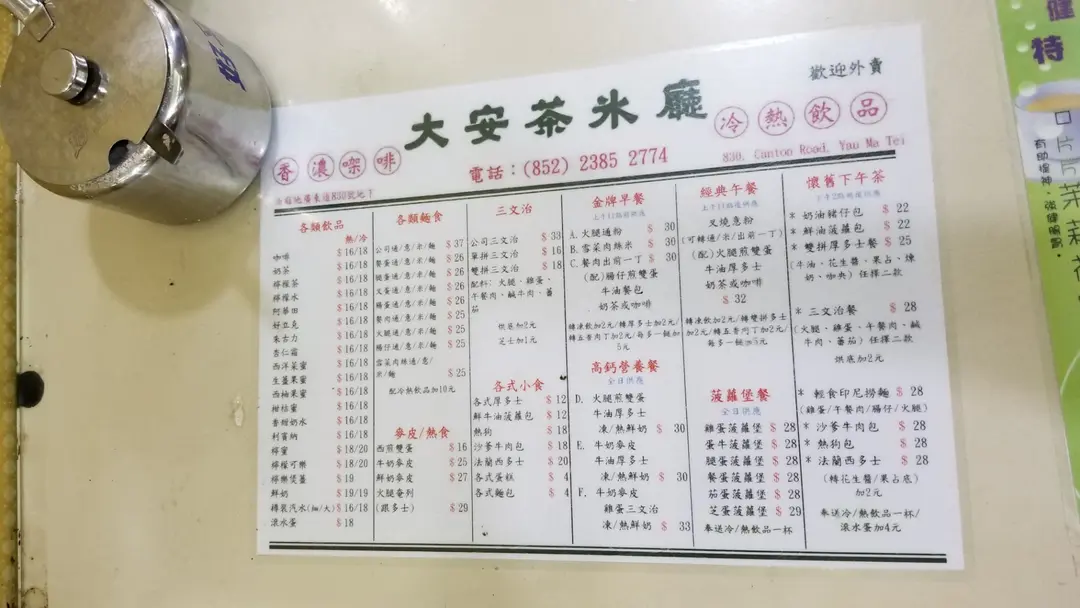 歡迎外賣
大安茶氷廳
香濃㗎啡
冷熱飲品
電話：(852) 2385 2774
830, Canton Road, Yau Ma Tei
油麻地廣東道830號地下
各類飲品
熱/冷
咖啡 $16/18
奶茶 $16/18
檸檬茶 $16/18
檸檬水 $16/18
阿華田 $16/18
好立克 $16/18
朱古力 $16/18
杏仁霜 $16/18
西洋菜蜜 $16/18
生薑果蜜 $16/18
西柚果蜜 $16/18
柑桔蜜 $16/18
香甜奶水 $16/18
利賓納 $16/18
檸蜜 $18/20
檸檬可樂 $18/20
檸樂煲薑 $19
鮮奶 $19/19
樽裝汽水(細/大) $16/18
滾水蛋 $18
各類麵食
公司通/意/米/麵 $37
餐蛋通/意/米/麵 $26
腿蛋通/意/米/麵 $26
叉蛋通/意/米/麵 $26
腸蛋通/意/米/麵 $26
餐肉通/意/米/麵 $25
火腿通/意/米/麵 $25
腸仔通/意/米/麵 $25
雪菜肉絲通/意/
米/麵 $25
配冷熱飲品加10元
麥皮/熱食
西煎雙蛋 $16
牛奶麥皮 $25
鮮奶麥皮 $27
火腿奄列
(跟多士) $29
三文治
公司三文治 $33
單拼三文治 $16
雙拼三文治 $18
配料：火腿、雞蛋、
午餐肉、鹹牛肉、蕃
茄
烘底加2元
芝士加1元
各式小食
各式厚多士 $12
鮮牛油菠蘿包 $12
熱狗 $18
沙爹牛肉包 $18
法蘭西多士 $20
各式蛋糕 $4
各式麵包 $4
金牌早餐
上午11點前供應
A. 火腿通粉 $30
B. 雪菜肉絲米 $30
C. 餐肉出前一丁 $30
(配)腸仔煎雙蛋
牛油餐包
奶茶或咖啡
轉凍飲加2元/轉厚多士加2元/
轉五香肉丁加2元/每多一餸加
5元
高鈣營養餐
全日供應
D. 火腿煎雙蛋
牛油厚多士
凍/熱鮮奶 $30
E. 牛奶麥皮
牛油厚多士
凍/熱鮮奶 $30
F. 牛奶麥皮
雞蛋三文治
凍/熱鮮奶 $33
經典午餐
上午11點後供應
叉燒意粉
(可轉通/米/出前一丁)
(配)火腿煎雙蛋
牛油厚多士
奶茶或咖啡
$32
轉凍飲加2元/轉雙拼多士
加2元/轉五香肉丁加2元/
每多一餸加5元
菠蘿堡餐
全日供應
雞蛋菠蘿堡 $28
蛋牛菠蘿堡 $28
腿蛋菠蘿堡 $28
餐蛋菠蘿堡 $28
茄蛋菠蘿堡 $28
芝蛋菠蘿堡 $29
奉送冷/熱飲品一杯
懷舊下午茶
* 奶油豬仔包 $22
* 鮮油菠蘿包 $22
* 雙拼厚多士餐 $25
(牛油、花生醬、果占、煉
奶、咖央) 任擇二款
* 三文治餐 $28
(火腿、雞蛋、午餐肉、鹹
牛肉、蕃茄) 任擇二款
烘底加2元
* 輕食印尼撈麵 $28
(雞蛋/午餐肉/腸仔/火腿)
* 沙爹牛肉包 $28
* 熱狗包 $28
* 法蘭西多士 $28
(轉花生醬/果占底)
加2元
奉送冷/熱飲品一杯/
滾水蛋加4元
健
特
有助提神、強健腸胃。